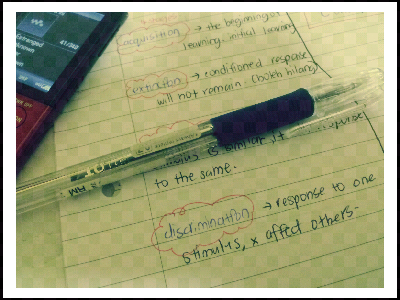 Estranged
unknown
acquisition → the beginning of
learning. initial learning
extinction → conditioned response
will not remain. (boleh hilang)
is similar. It
to the same.
discrimination → response to one
stimulus, x affect others.